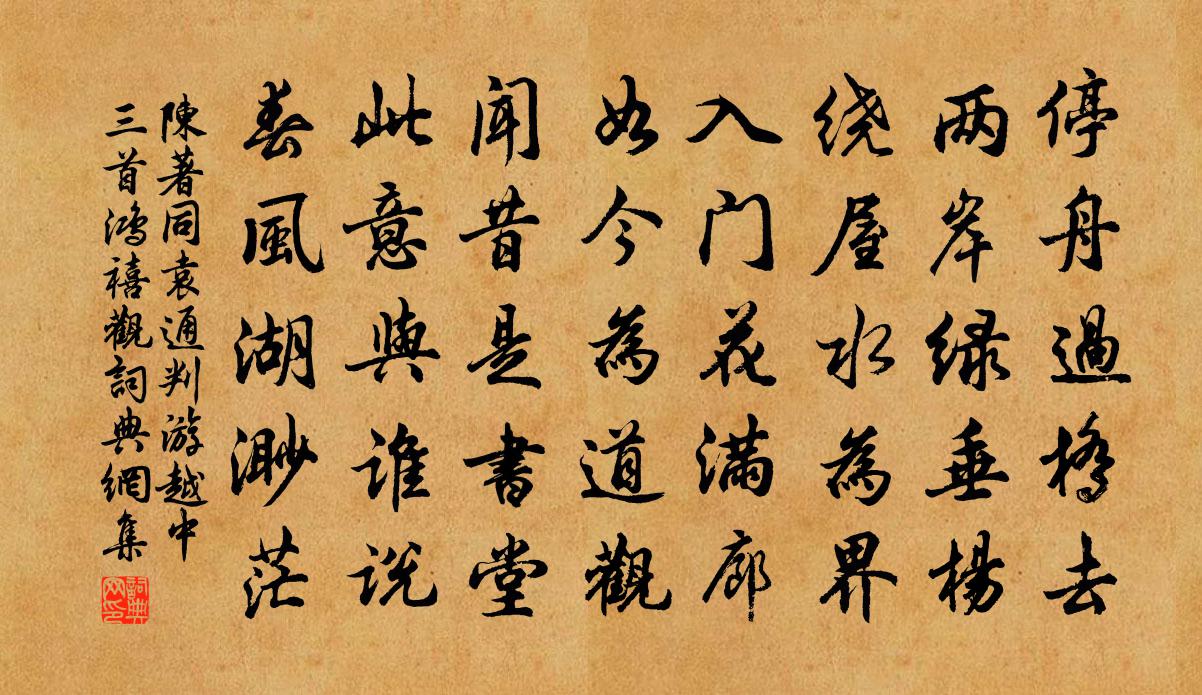 停舟過橋去
两岸绿垂楊
绕屋水為界
入门花满廊
如今為道觀
闻昔是書堂
此意與谁说
春風湖渺茫
陳著同袁通判游越中
三首鸿禧觀詞典網集
詞典网印